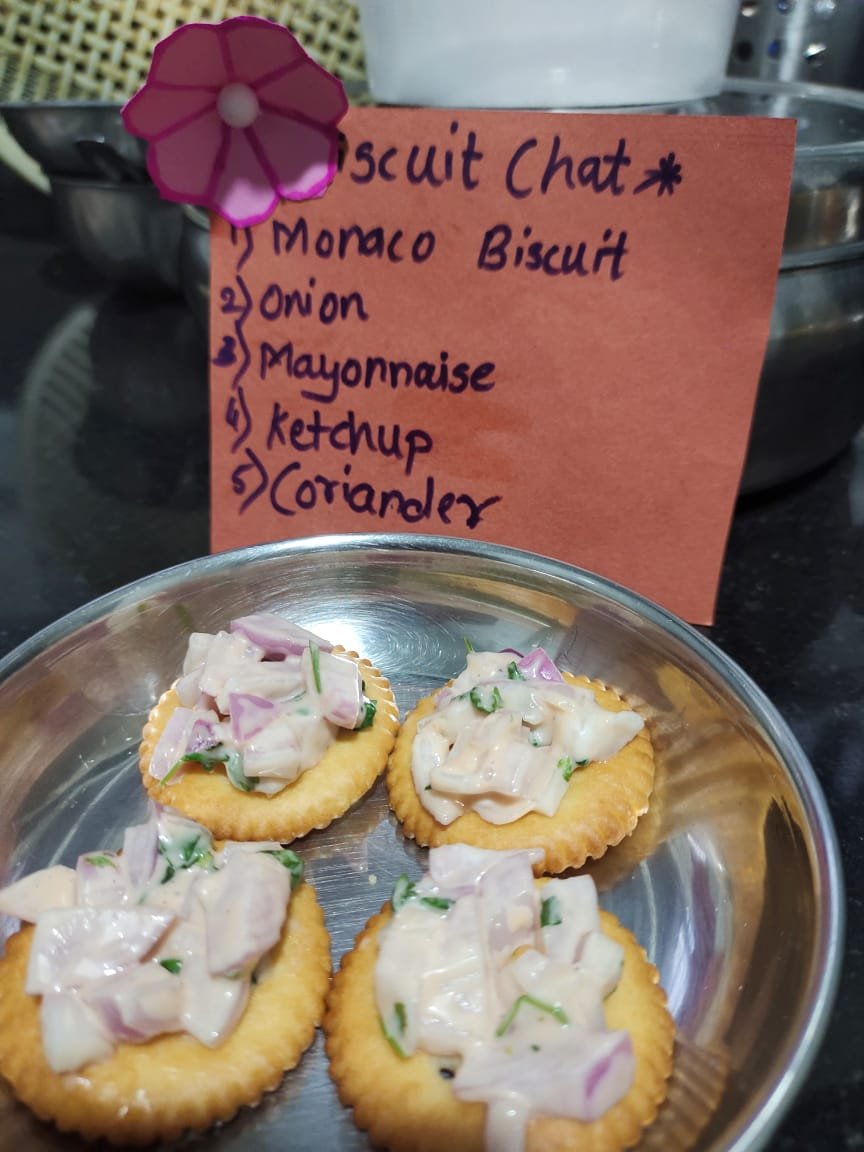 iscuit Chat *
1) Monaco Biscuit
2) Onion
3) Mayonnaise
4) Ketchup
5) Coriander